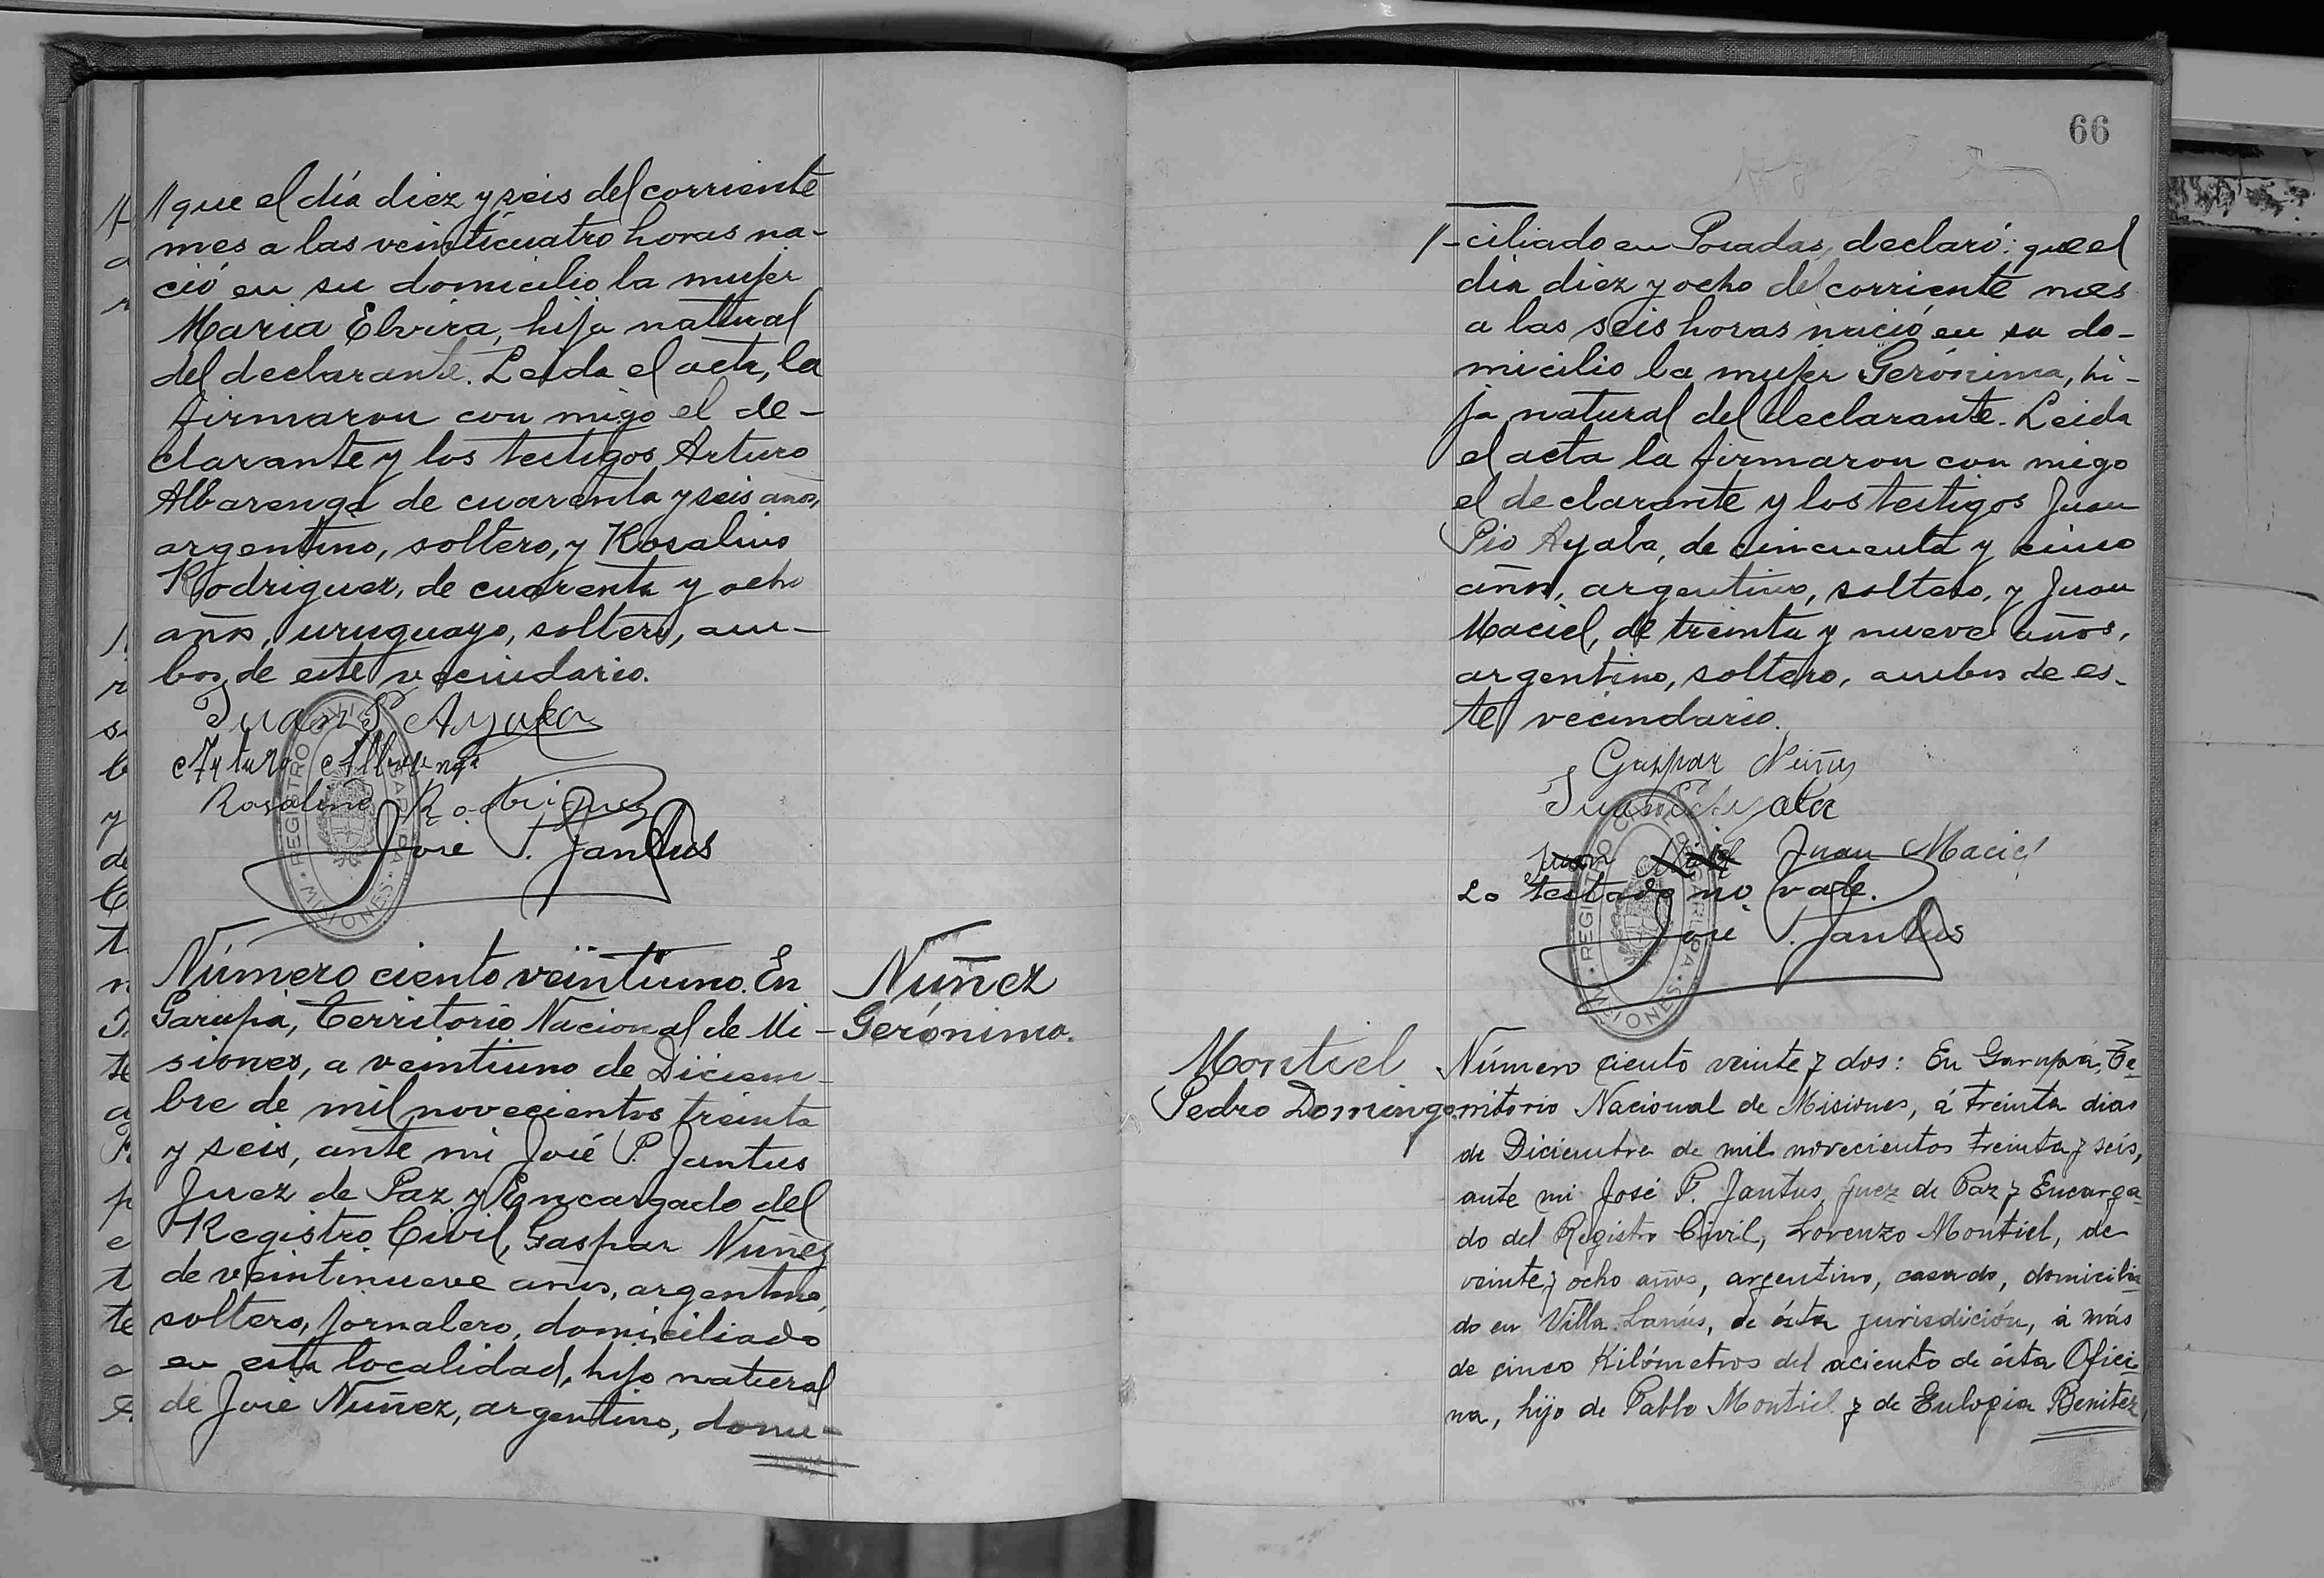 // que el día diez y seis del corriente
mes a las veinticuatro horas na-
ció en su domicilio la mujer
Maria Elvira, hija natural
del declarante. Leida el acta, la
firmaron con migo el de-
clarante y los testigos Arturo
Albarenga de cuarenta y seis años,
argentino, soltero, y Rosalino
Rodriguez, de cuarenta y ocho
años, uruguayo, soltero, am-
bos de este vecindario.
Juan P Ayala
Arturo Albarenga
Rosalino Rodriguez
José P. Jantus
REGISTRO CIVIL GARUPA
MISIONES
Número ciento veintiuno. En
Garupá, Territorio Nacional de Mi-
siones, a veintiuno de Diciem-
bre de mil novecientos treinta
y seis, ante mi José P. Jantus
Juez de Paz y Encargado del
Registro Civil, Gaspar Nuñez
de veintinueve años, argentino,
soltero, jornalero, domiciliado
en esta localidad, hijo natural
de José Nuñez, argentino, domi-
Nuñez
Gerónima.
66
//-ciliado en Posadas, declaró: que el
día diez y ocho del corriente mes
a las seis horas nació en su do-
micilio la mujer Gerónima, hi-
ja natural del declarante. Leida
el acta la firmaron con migo
el declarante y los testigos Juan
Pio Ayala, de cincuenta y cinco
años, argentino, soltero, y Juan
Maciel, de treinta y nueve años,
argentino, soltero, ambos de es-
te vecindario.
Gaspar Nuñez
Juan P Ayala
Juan Juan Maciel
Lo testado no vale.
José P. Jantus
REGISTRO CIVIL GARUPA
MISIONES
Montiel
Pedro Domingo
Número ciento veinte y dos: En Garupá, Te-
rritorio Nacional de Misiones, á treinta dias
de Diciembre de mil novecientos treinta y seis,
ante mi José P. Jantus Juez de Paz y Encarga-
do del Registro Civil, Lorenzo Montiel, de
veinte y ocho años, argentino, casado, domicilia-
do en Villa Lanús, de ésta jurisdición, á más
de cinco Kilómetros del aciento de ésta Ofici-
na, hijo de Pablo Montiel y de Eulogia Benitez,